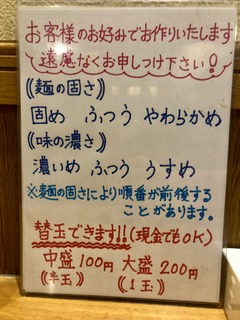 お客様のお好みでお作りいたします
遠慮なくお申しつけ下さい!
《麺の固さ》
固め ふつう やわらかめ
《味の濃さ》
濃いめ ふつう うすめ
※麺の固さにより順番が前後する
ことがあります。
替玉できます!!(現金でもOK)
中盛100円 大盛200円
(半玉) (1玉)